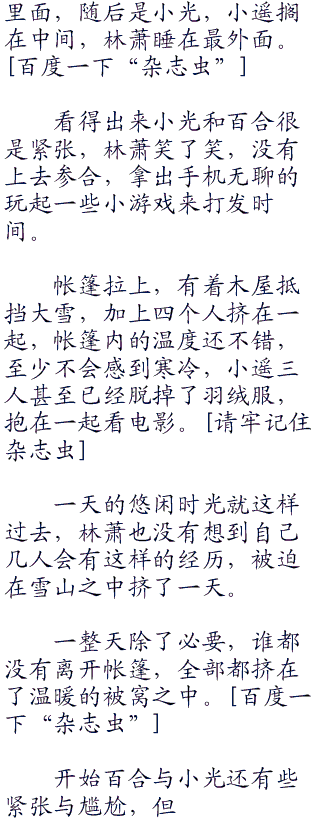 里面，随后是小光，小遥搁
在中间，林萧睡在最外面。
[百度一下“杂志虫”]
看得出来小光和百合很
是紧张，林萧笑了笑，没有
上去参合，拿出手机无聊的
玩起一些小游戏来打发时
间。
帐篷拉上，有着木屋抵
挡大雪，加上四个人挤在一
起，帐篷内的温度还不错，
至少不会感到寒冷，小遥三
人甚至已经脱掉了羽绒服，
抱在一起看电影。[请牢记住
杂志虫]
一天的悠闲时光就这样
过去，林萧也没有想到自己
几人会有这样的经历，被迫
在雪山之中挤了一天。
一整天除了必要，谁都
没有离开帐篷，全部都挤在
了温暖的被窝之中。[百度一
下“杂志虫”]
开始百合与小光还有些
紧张与尴尬，但